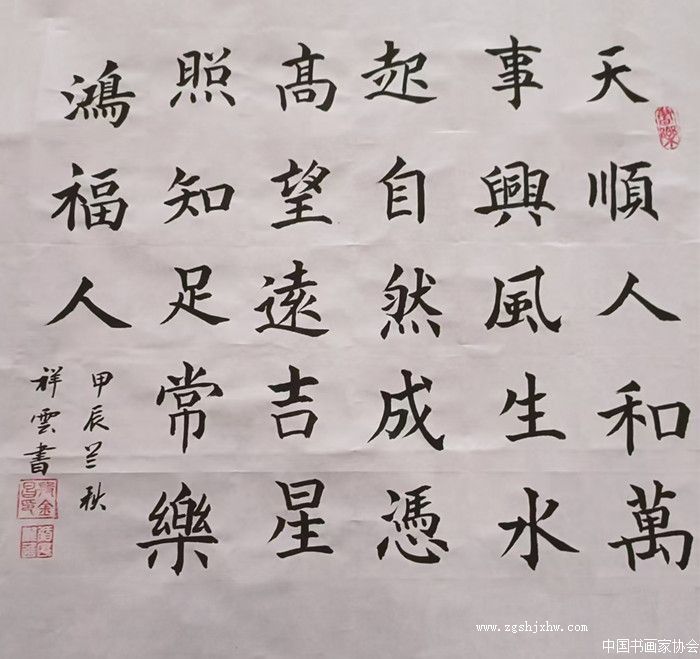 天順人和萬
事興風生水
起自然成憑
高望遠吉星
照知足常樂
鴻福人
甲辰兰秋
祥雲書
www.zgshjxhw.com
中国书画家协会